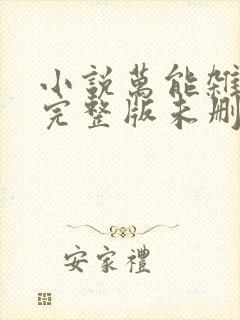 小說萬能雜
完整版未刪
安家禮